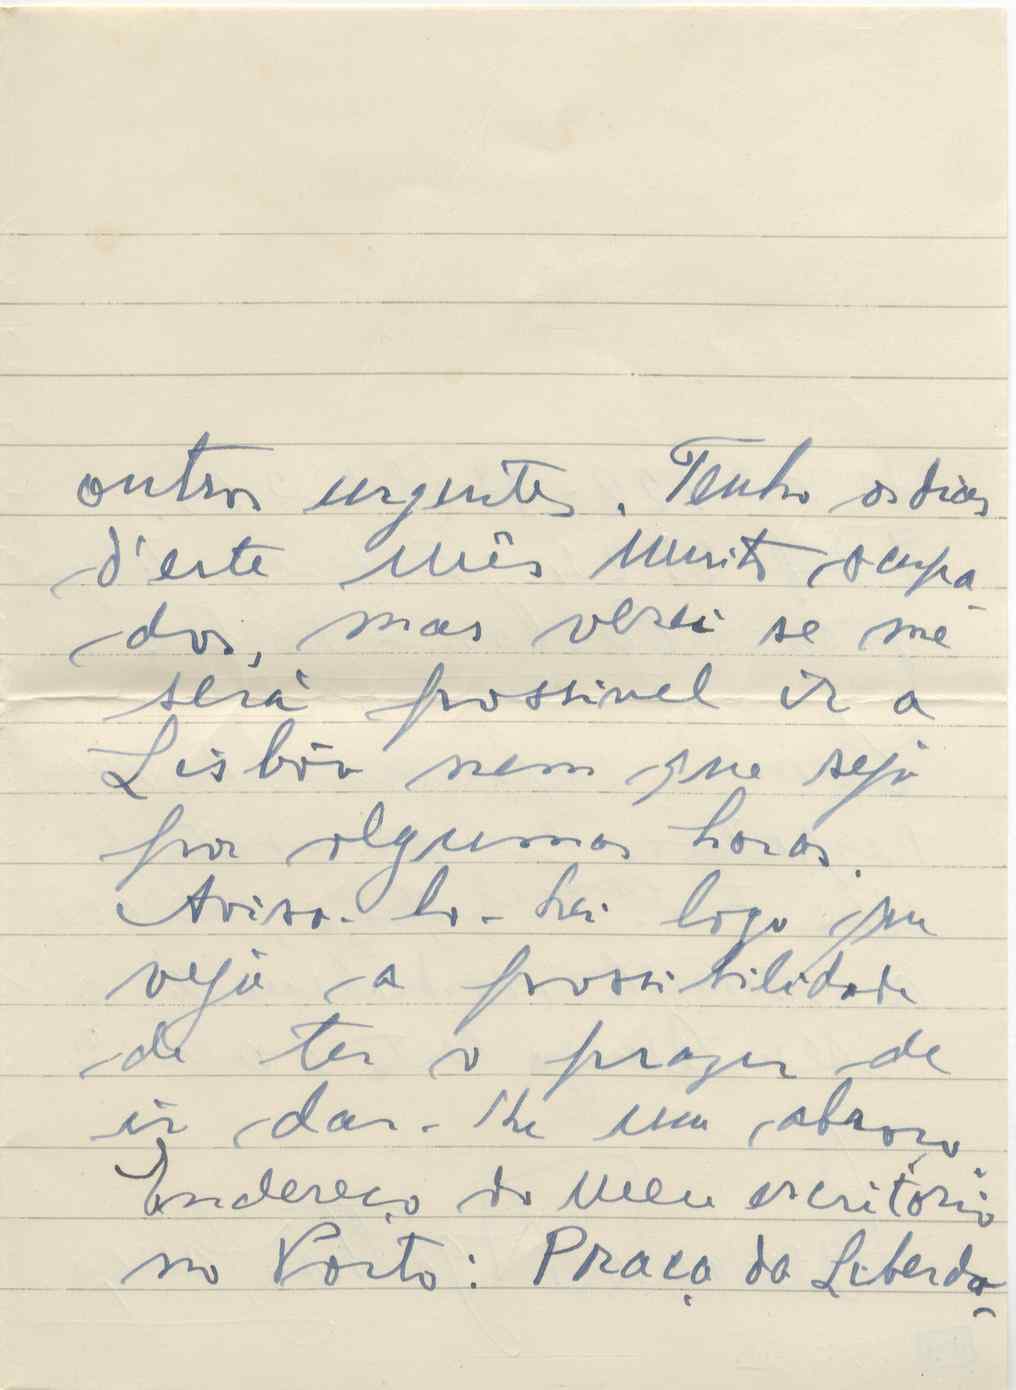 outros urgentes. Tenho os dias
d'este mês muito ocupa-
dos, mas verei se me
será possivel ir a
Lisbôa nem que seja
por algumas horas.
Aviso-lo-hei logo que
veja a possibilidade
de ter o prazer de
ir dar-lhe um abraço
Endereço do meu escritório
no Porto: Praça da Liberda-